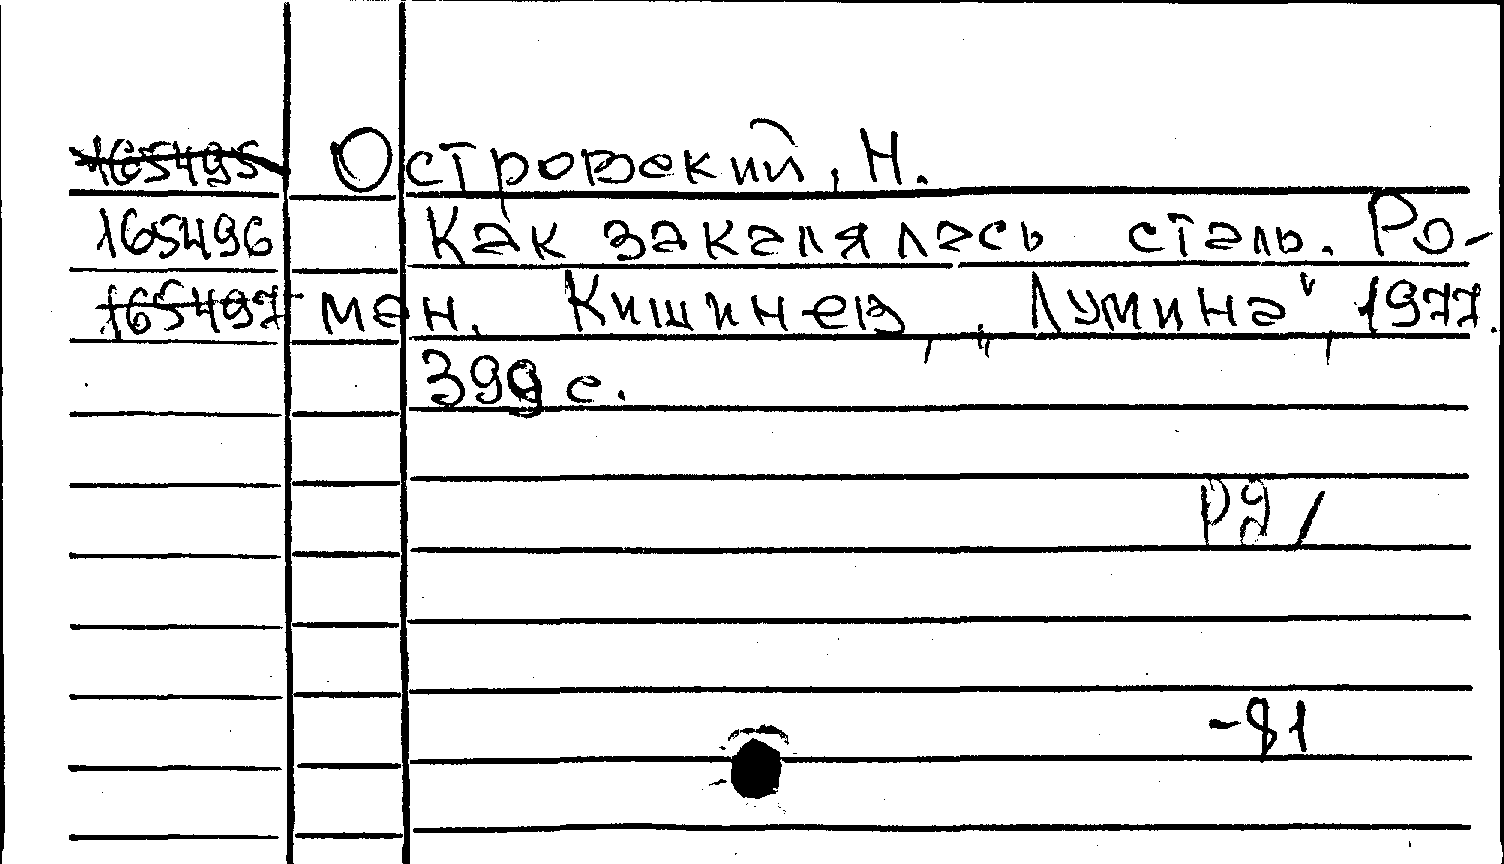 165495 Островский, Н.
165496 Как закалялась сталь. Ро-
165497 ман. Кишинев, „Лумина“, 1977.
399 с.
-81